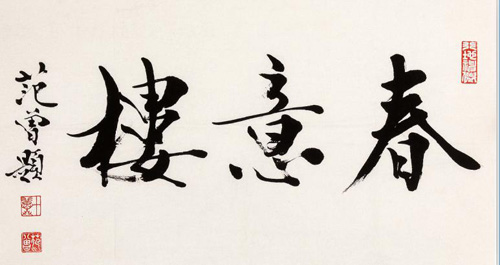 春意樓
范曾題